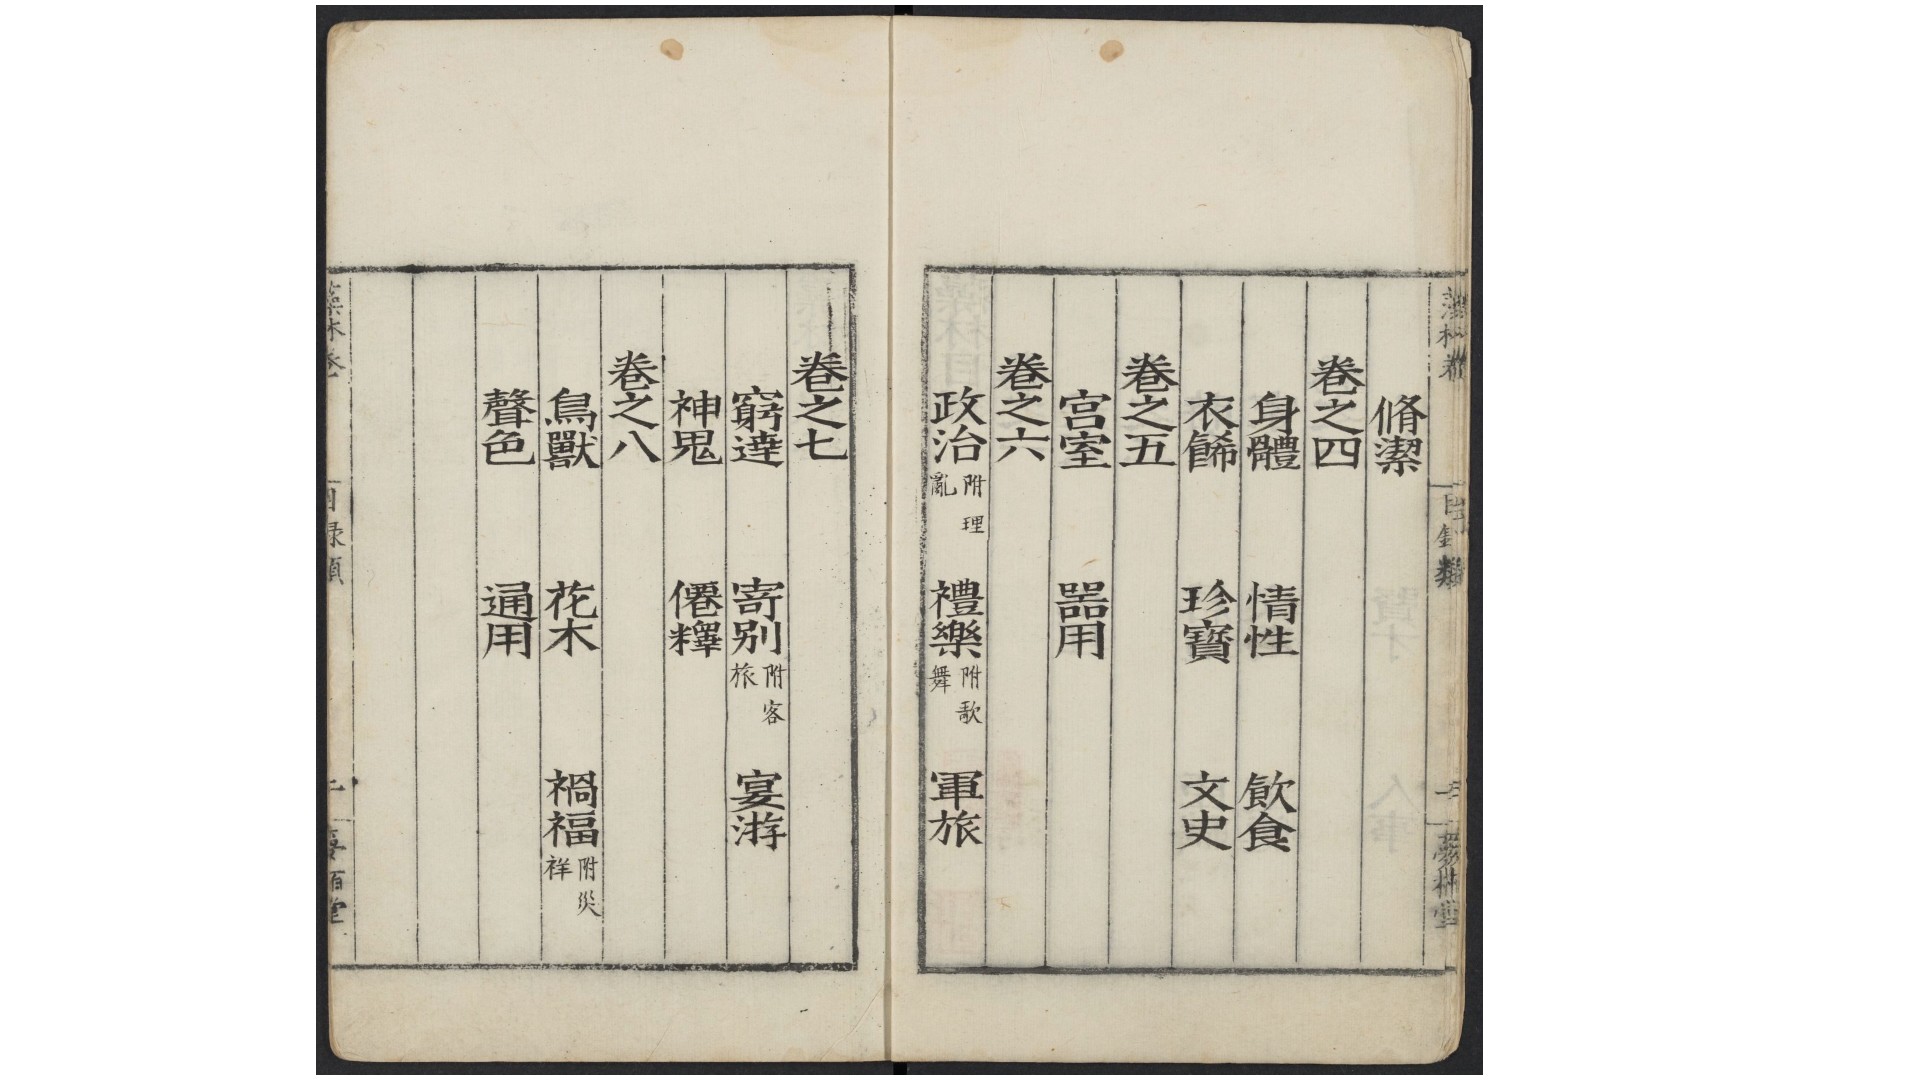 脩潔
卷之四
身體 情性 飲食
衣餙 珍寶 文史
卷之五
宫室 噐用
卷之六
政治 附理亂 禮樂 附歌舞 軍旅
卷之七
窮達 寄别 附客旅 宴游
神鬼 僊釋
卷之八
鳥獸 花木 禍福 附災祥
聲色 通用